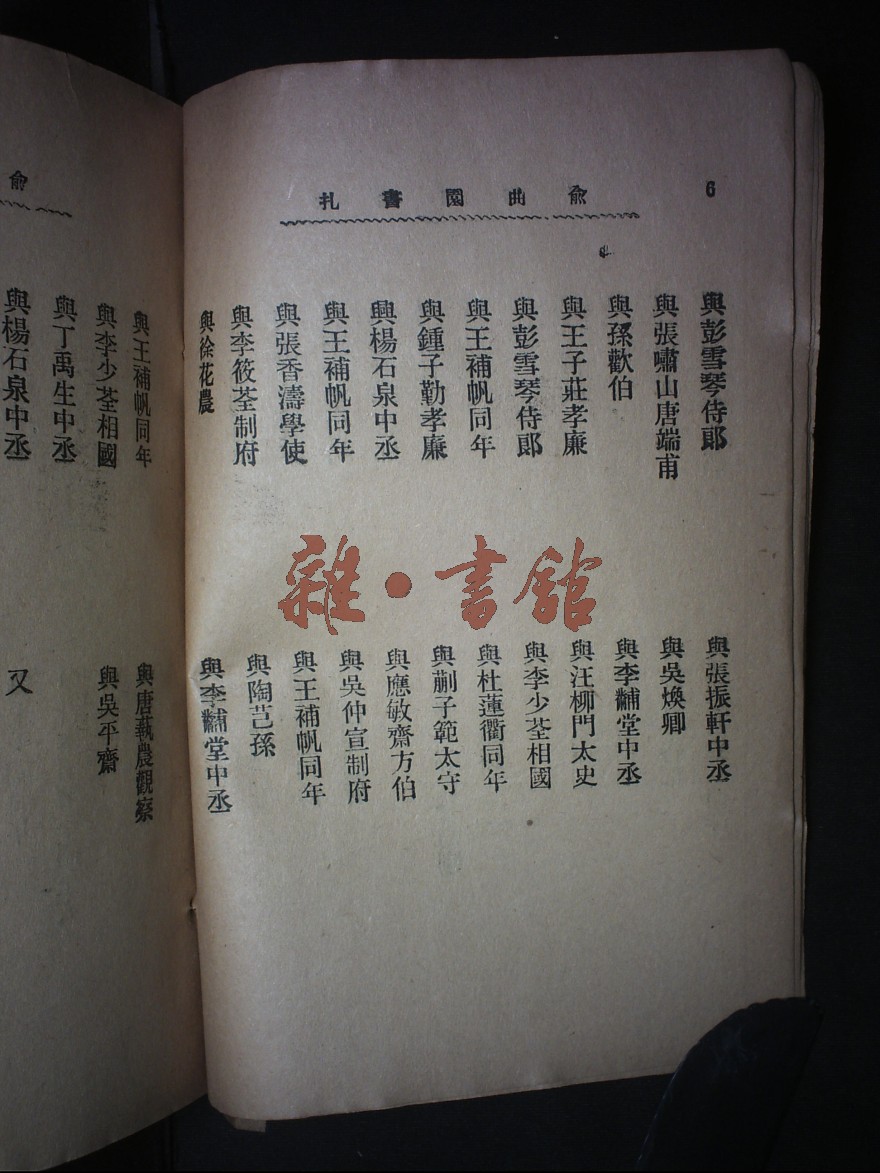 6
俞曲園書扎
與彭雪琴侍郎
與張嘯山唐端甫
與孫歡伯
與王子莊孝廉
與彭雪琴侍郎
與王補帆同年
與鍾子勤孝廉
與楊石泉中丞
與王補帆同年
與張香濤學使
與李筱荃制府
與徐花農
與張振軒中丞
與吳煥卿
與李黼堂中丞
與汪柳門太史
與李少荃相國
與杜蓮衢同年
與蒯子範太守
與應敏齋方伯
與吳仲宣制府
與王補帆同年
與陶芑孫
與李黼堂中丞
俞
與王補帆同年
與李少荃相國
與丁禹生中丞
與楊石泉中丞
與唐蓺農觀察
與吳平齋
又
雜·書館